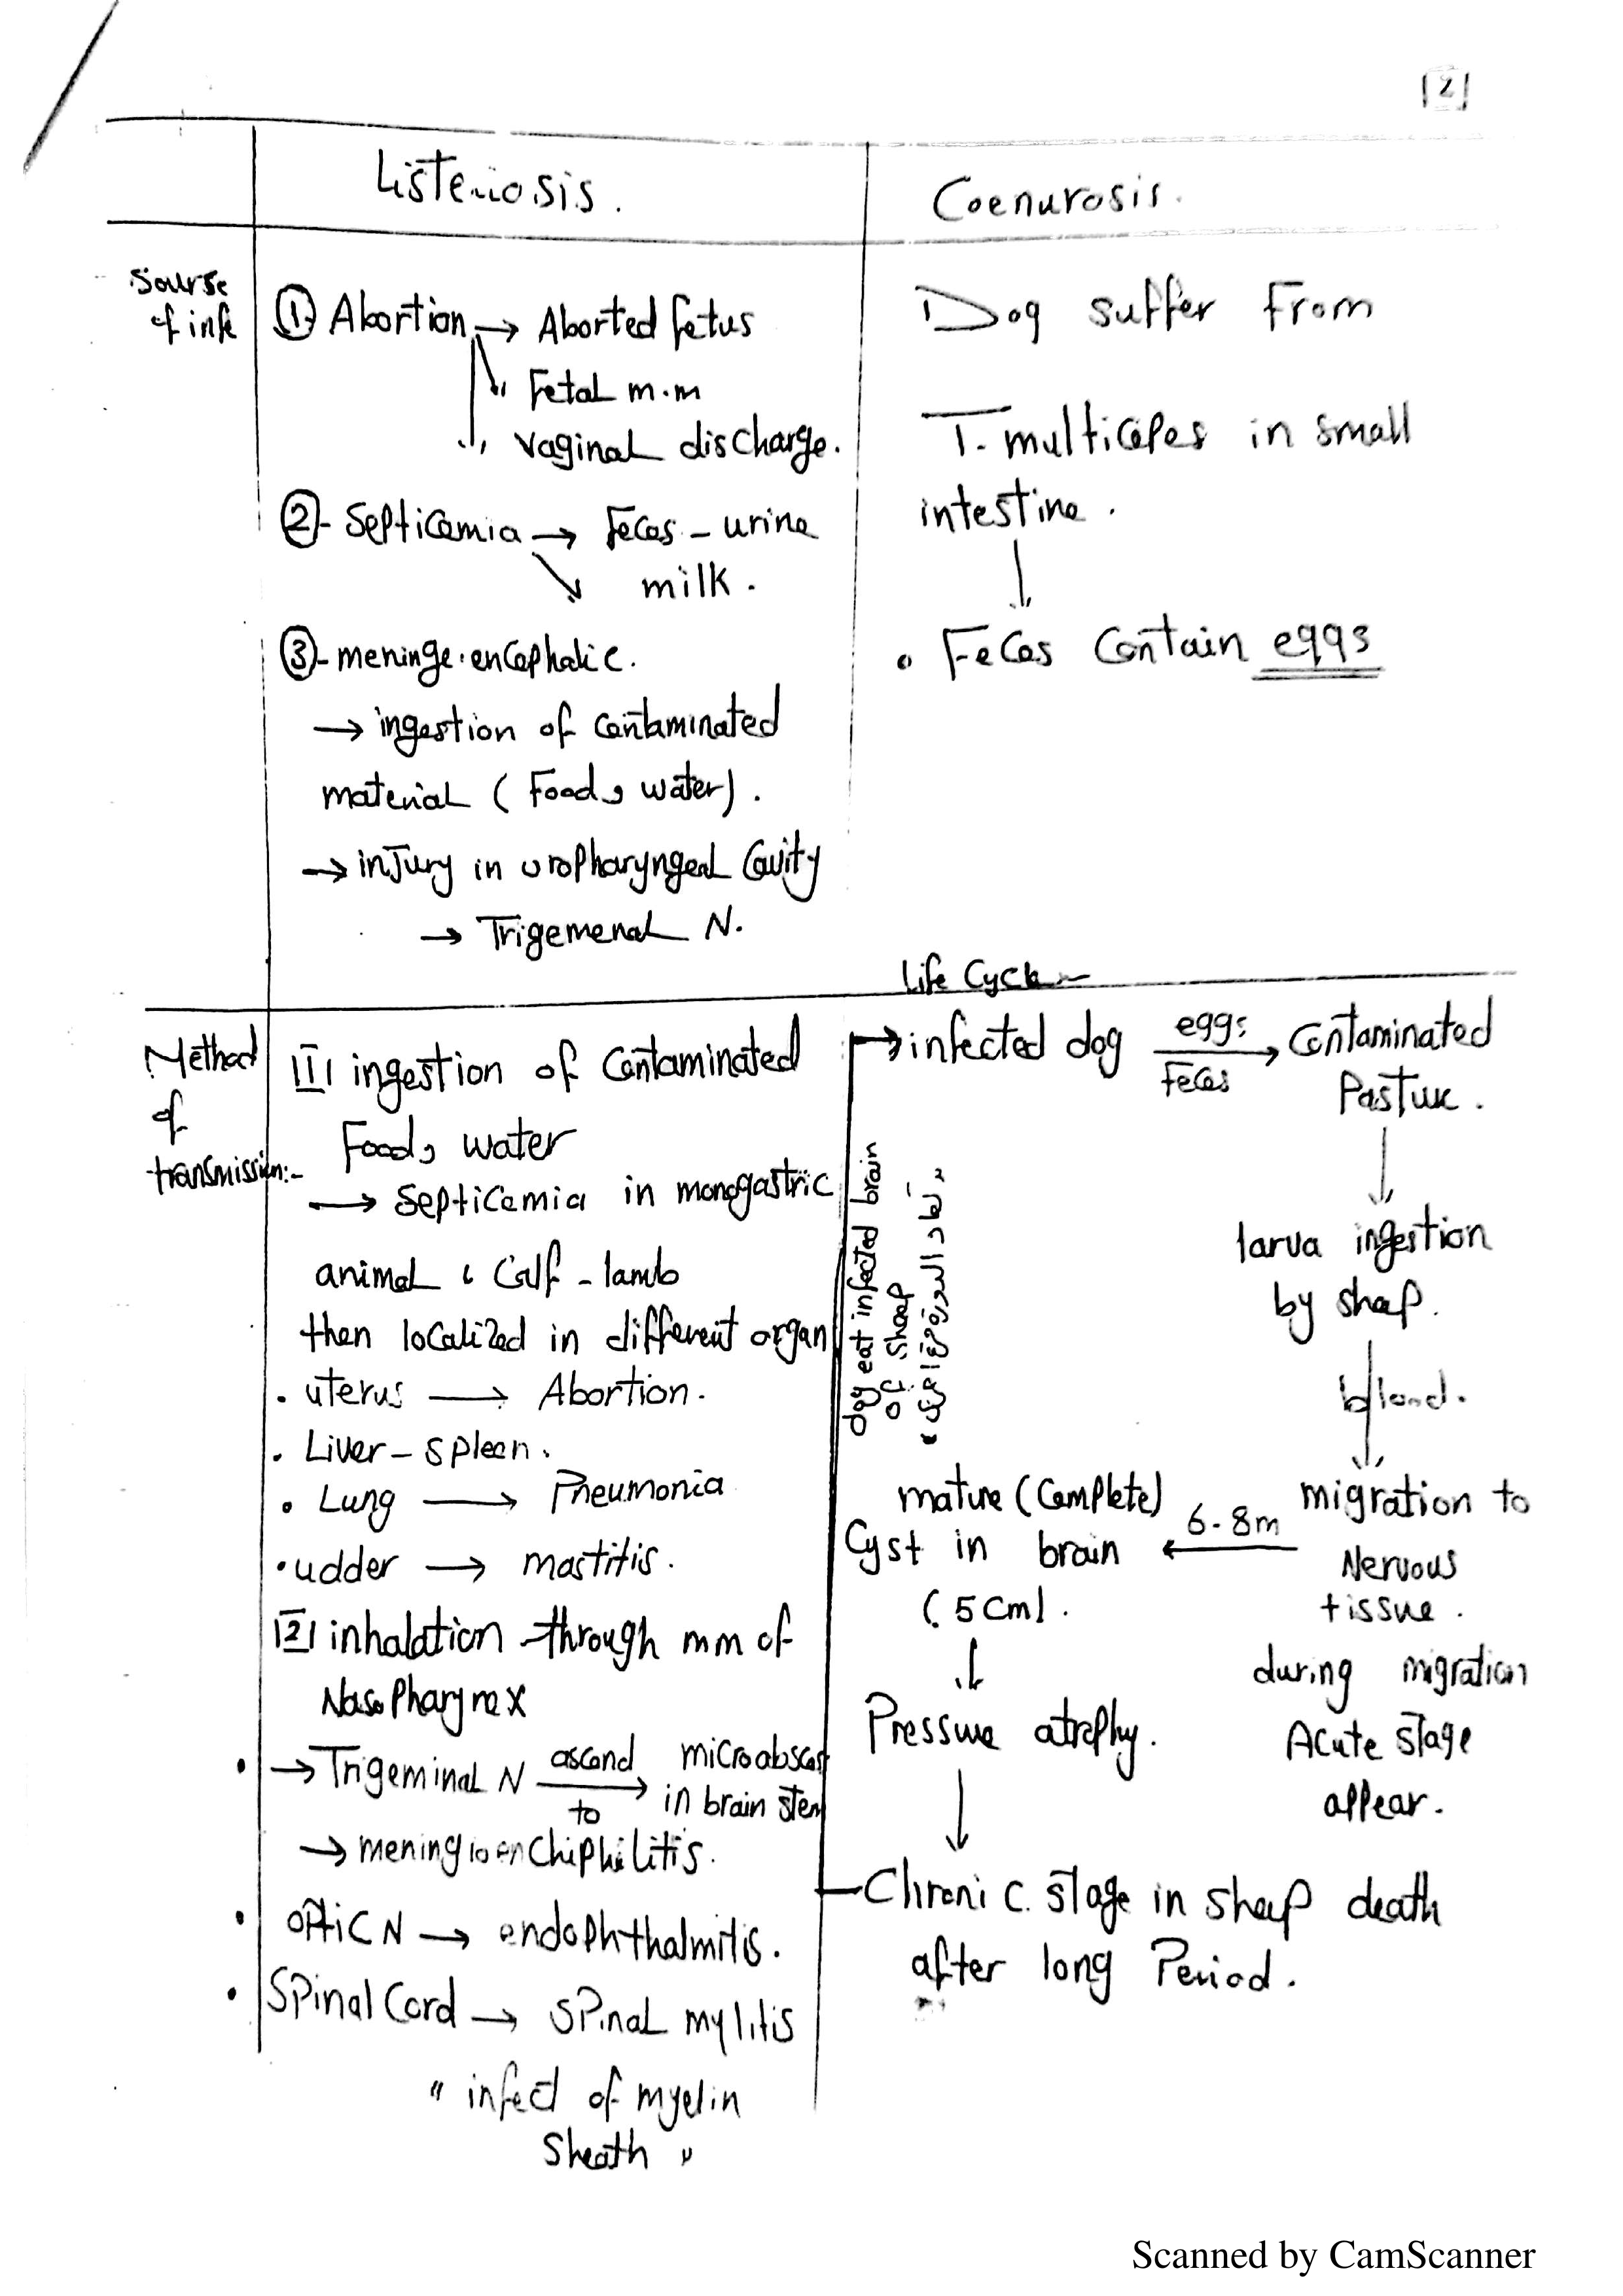 [2]
Listeriosis.
Coenurosis.
Sourse
of inf
① Abortion → Aborted fetus
Fetal m.m
vaginal discharge.
②- Septicemia → Feces - urine
milk.
③- meninge.encephalic.
→ ingestion of contaminated
material (Food, water).
→ injury in oropharyngeal Cavity
→ Trigemenal N.
Dog suffer From
T. multiceps in small
intestine.
• Feces Contain eggs
Method
of
transmission:-
[1] ingestion of Contaminated
Food, water
→ Septicemia in monogastric
animal, Calf - lamb
then localized in different organ
• uterus → Abortion.
• Liver - spleen.
• Lung → Pneumonia
• udder → mastitis.
[2] inhalation through mm of
Nasopharynex
• → Trigeminal N ascend to microabscess
in brain stem
→ meningioenchiphilitis.
• optic N → endophthalmitis.
• Spinal Cord → spinal mylitis
" infect of myelin
Sheath "
Life Cycle:-
→ infected dog eggs Feces → Contaminated
Pasture.
larva ingestion
by sheep.
blood.
migration to
Nervous
tissue.
during migration
Acute stage
appear.
6-8m
mature (Complete)
Cyst in brain
(5cm).
Pressure atrophy.
Chronic. stage in sheep death
after long Period.
dog eat infected brain
of sheep